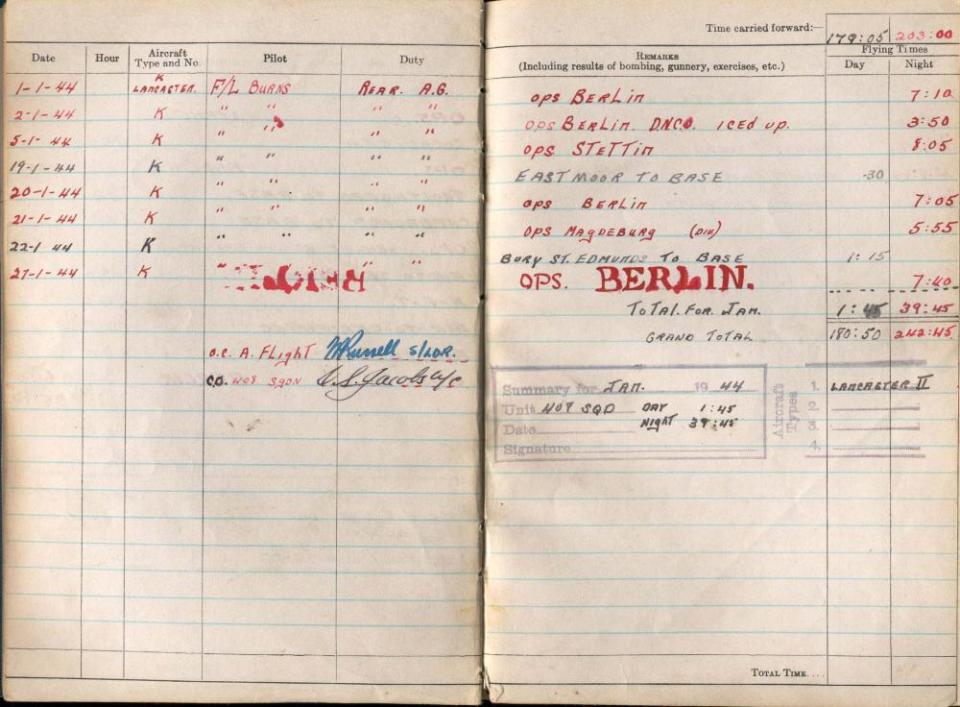 Date Hour Aircraft Type and No. Pilot Duty
1-1-44 K LANCASTER. F/L BURNS REAR. A.G.
2-1-44 K " " " "
5-1-44 K " " " "
19-1-44 K " " " "
20-1-44 K " " " "
21-1-44 K " " " "
22-1 44 K " " " "
27-1-44 K " " " "
O.C. A. FLIGHT Russell S/LDR.
C.O. 408 SQDN Jacobs W/C
Time carried forward:— 179:05 203:00
REMARKS Flying Times
(Including results of bombing, gunnery, exercises, etc.) Day Night
OPS BERLIN 7:10
OPS BERLIN. D.N.C.O. ICED UP. 3:50
OPS STETTIN 8:05
EAST MOOR TO BASE :30
OPS BERLIN 7:05
OPS MAGDEBURG (DIV) 5:55
BURY ST. EDMUNDS TO BASE 1:15
OPS. BERLIN. 7:40
TOTAL FOR JAN. 1:45 39:45
GRAND TOTAL 180:50 242:45
Summary for JAN. 1944 Aircraft Types 1. LANCASTER II
Unit 408 SQD DAY 1:45 2.
Date NIGHT 39:45 3.
Signature 4.
TOTAL TIME....